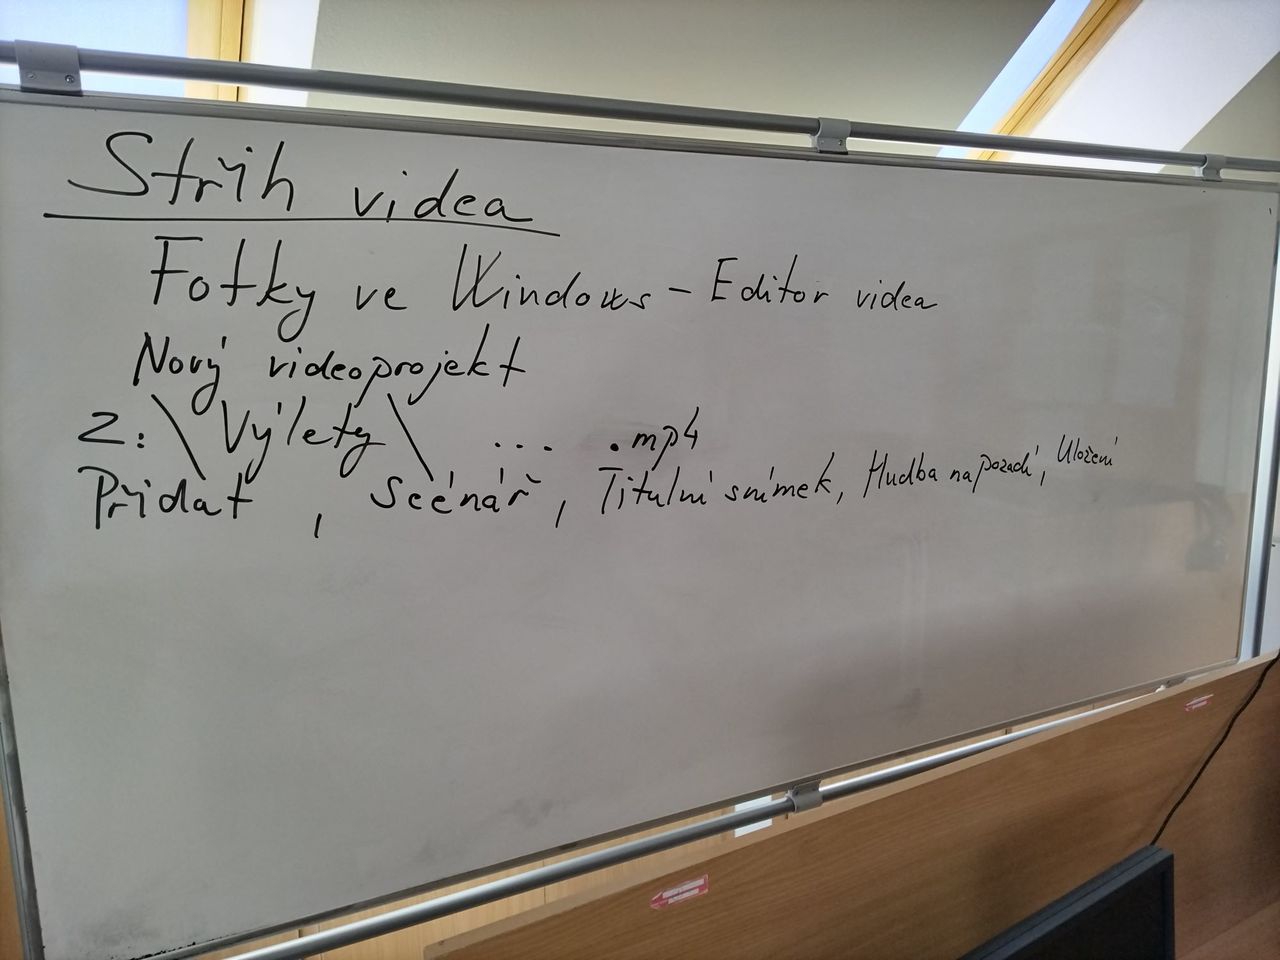 Střih videa
Fotky ve Windows - Editor videa
Nový videoprojekt
Z:\Výlety\ ... .mp4
Přidat, Scénář, Titulní snímek, Hudba na pozadí, Uložení